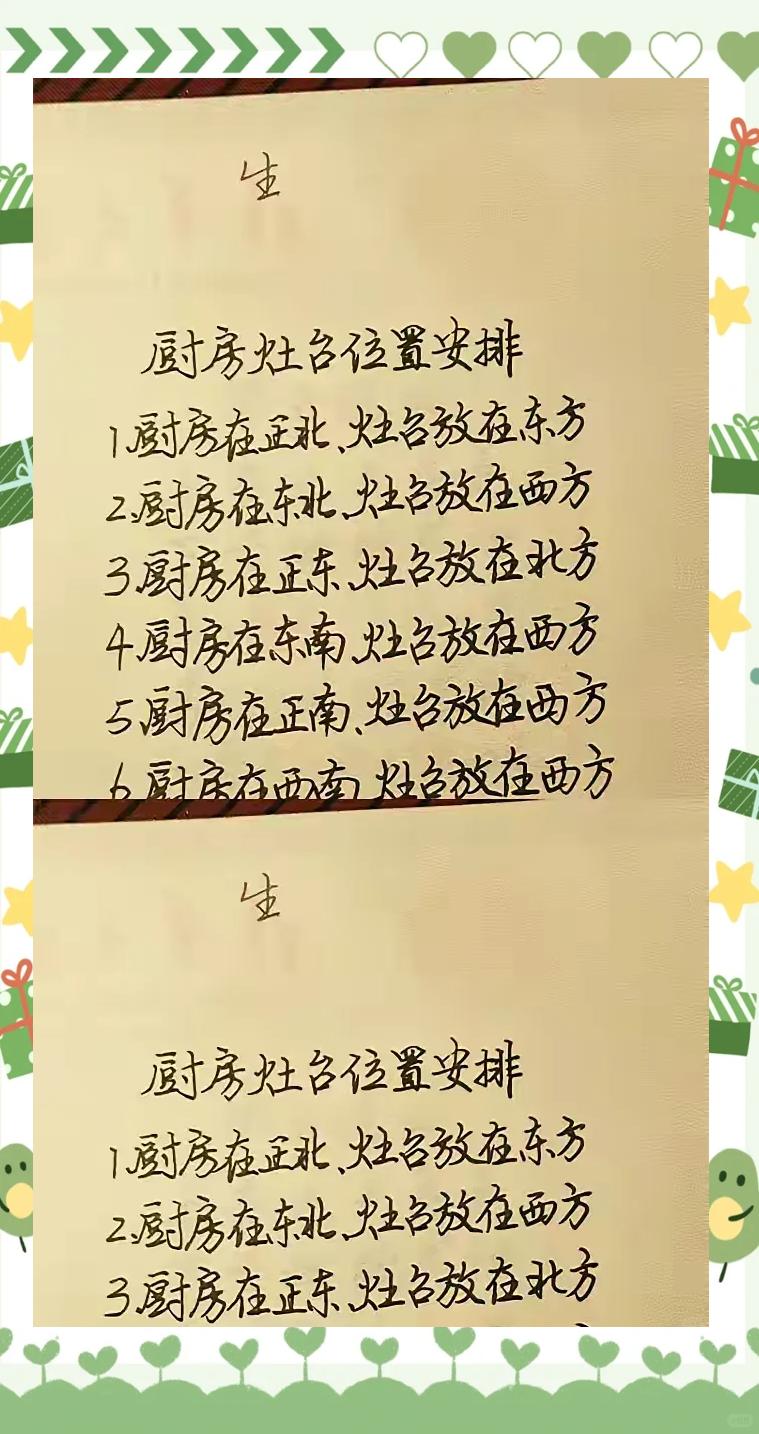 生
厨房灶台位置安排
1.厨房在正北、灶台放在东方
2.厨房在东北、灶台放在西方
3.厨房在正东、灶台放在北方
4.厨房在东南、灶台放在西方
5.厨房在正南、灶台放在西方
6.厨房在西南 灶台放在西方
生
厨房灶台位置安排
1.厨房在正北、灶台放在东方
2.厨房在东北、灶台放在西方
3.厨房在正东、灶台放在北方